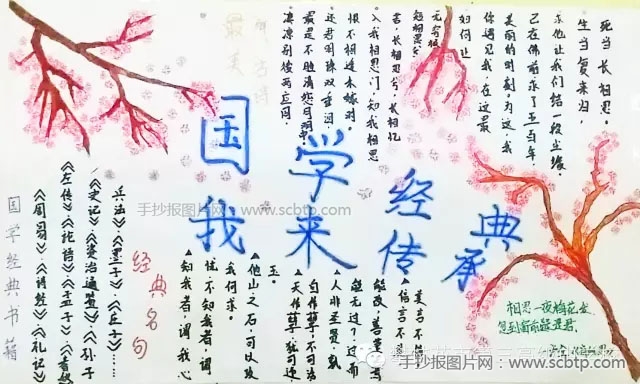 国学经典
我来传承
死当长相思。
生当复来归，
求他让我们结一段尘缘
已在佛前求了五百年，
美丽的时刻。为这，我
你遇见我，在这最
如何让
无穷极
短相思兮
苦，长相思兮，长相忆
入我相思门，知我相思
恨不相逢未嫁时。
还君明珠双垂泪
最是不胜清怨月明中
凄凉别后两应同，
相思一夜梅花发
忽到窗前疑是君。
美言不信
▲信言不美
能改，善莫大焉
能无过？过而
▲人非圣贤，孰
自作孽，不可活
▲天作孽，犹可违
玉。
▲他山之石，可以攻
我何求。
忧，不知我者，谓
▲知我者，谓我心
经典名句
兵法》《墨子》《庄子》……
《史记》《资治通鉴》《孙子
《左传》《论语》《孟子》《春秋
《周易》《诗经》《礼记》
国学经典书籍
手抄报图片网-www.scbtp.com
手抄报图片网-www.scbtp.com